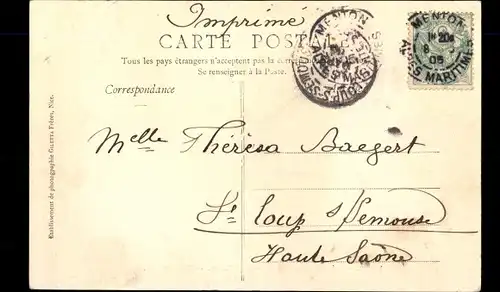 Imprimé
CARTE POSTALE
Tous les pays étrangers n'acceptent pas la
Se renseigner à la Poste.
MENTON
MENTON
8
05
ALPES MARITIMES
Correspondance
Melle Thérèsa Baegert
St loup s/Semouse
Haute Saône
Etablissement de photographie GILETTA Frères, Nice.